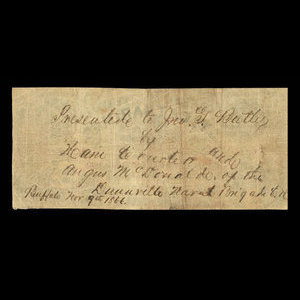 Presented to Jno. S. Butler
by
and
Angus McDonald. of the
Dunnville Naval Brigade C.W
Buffalo Nov 9th 1866